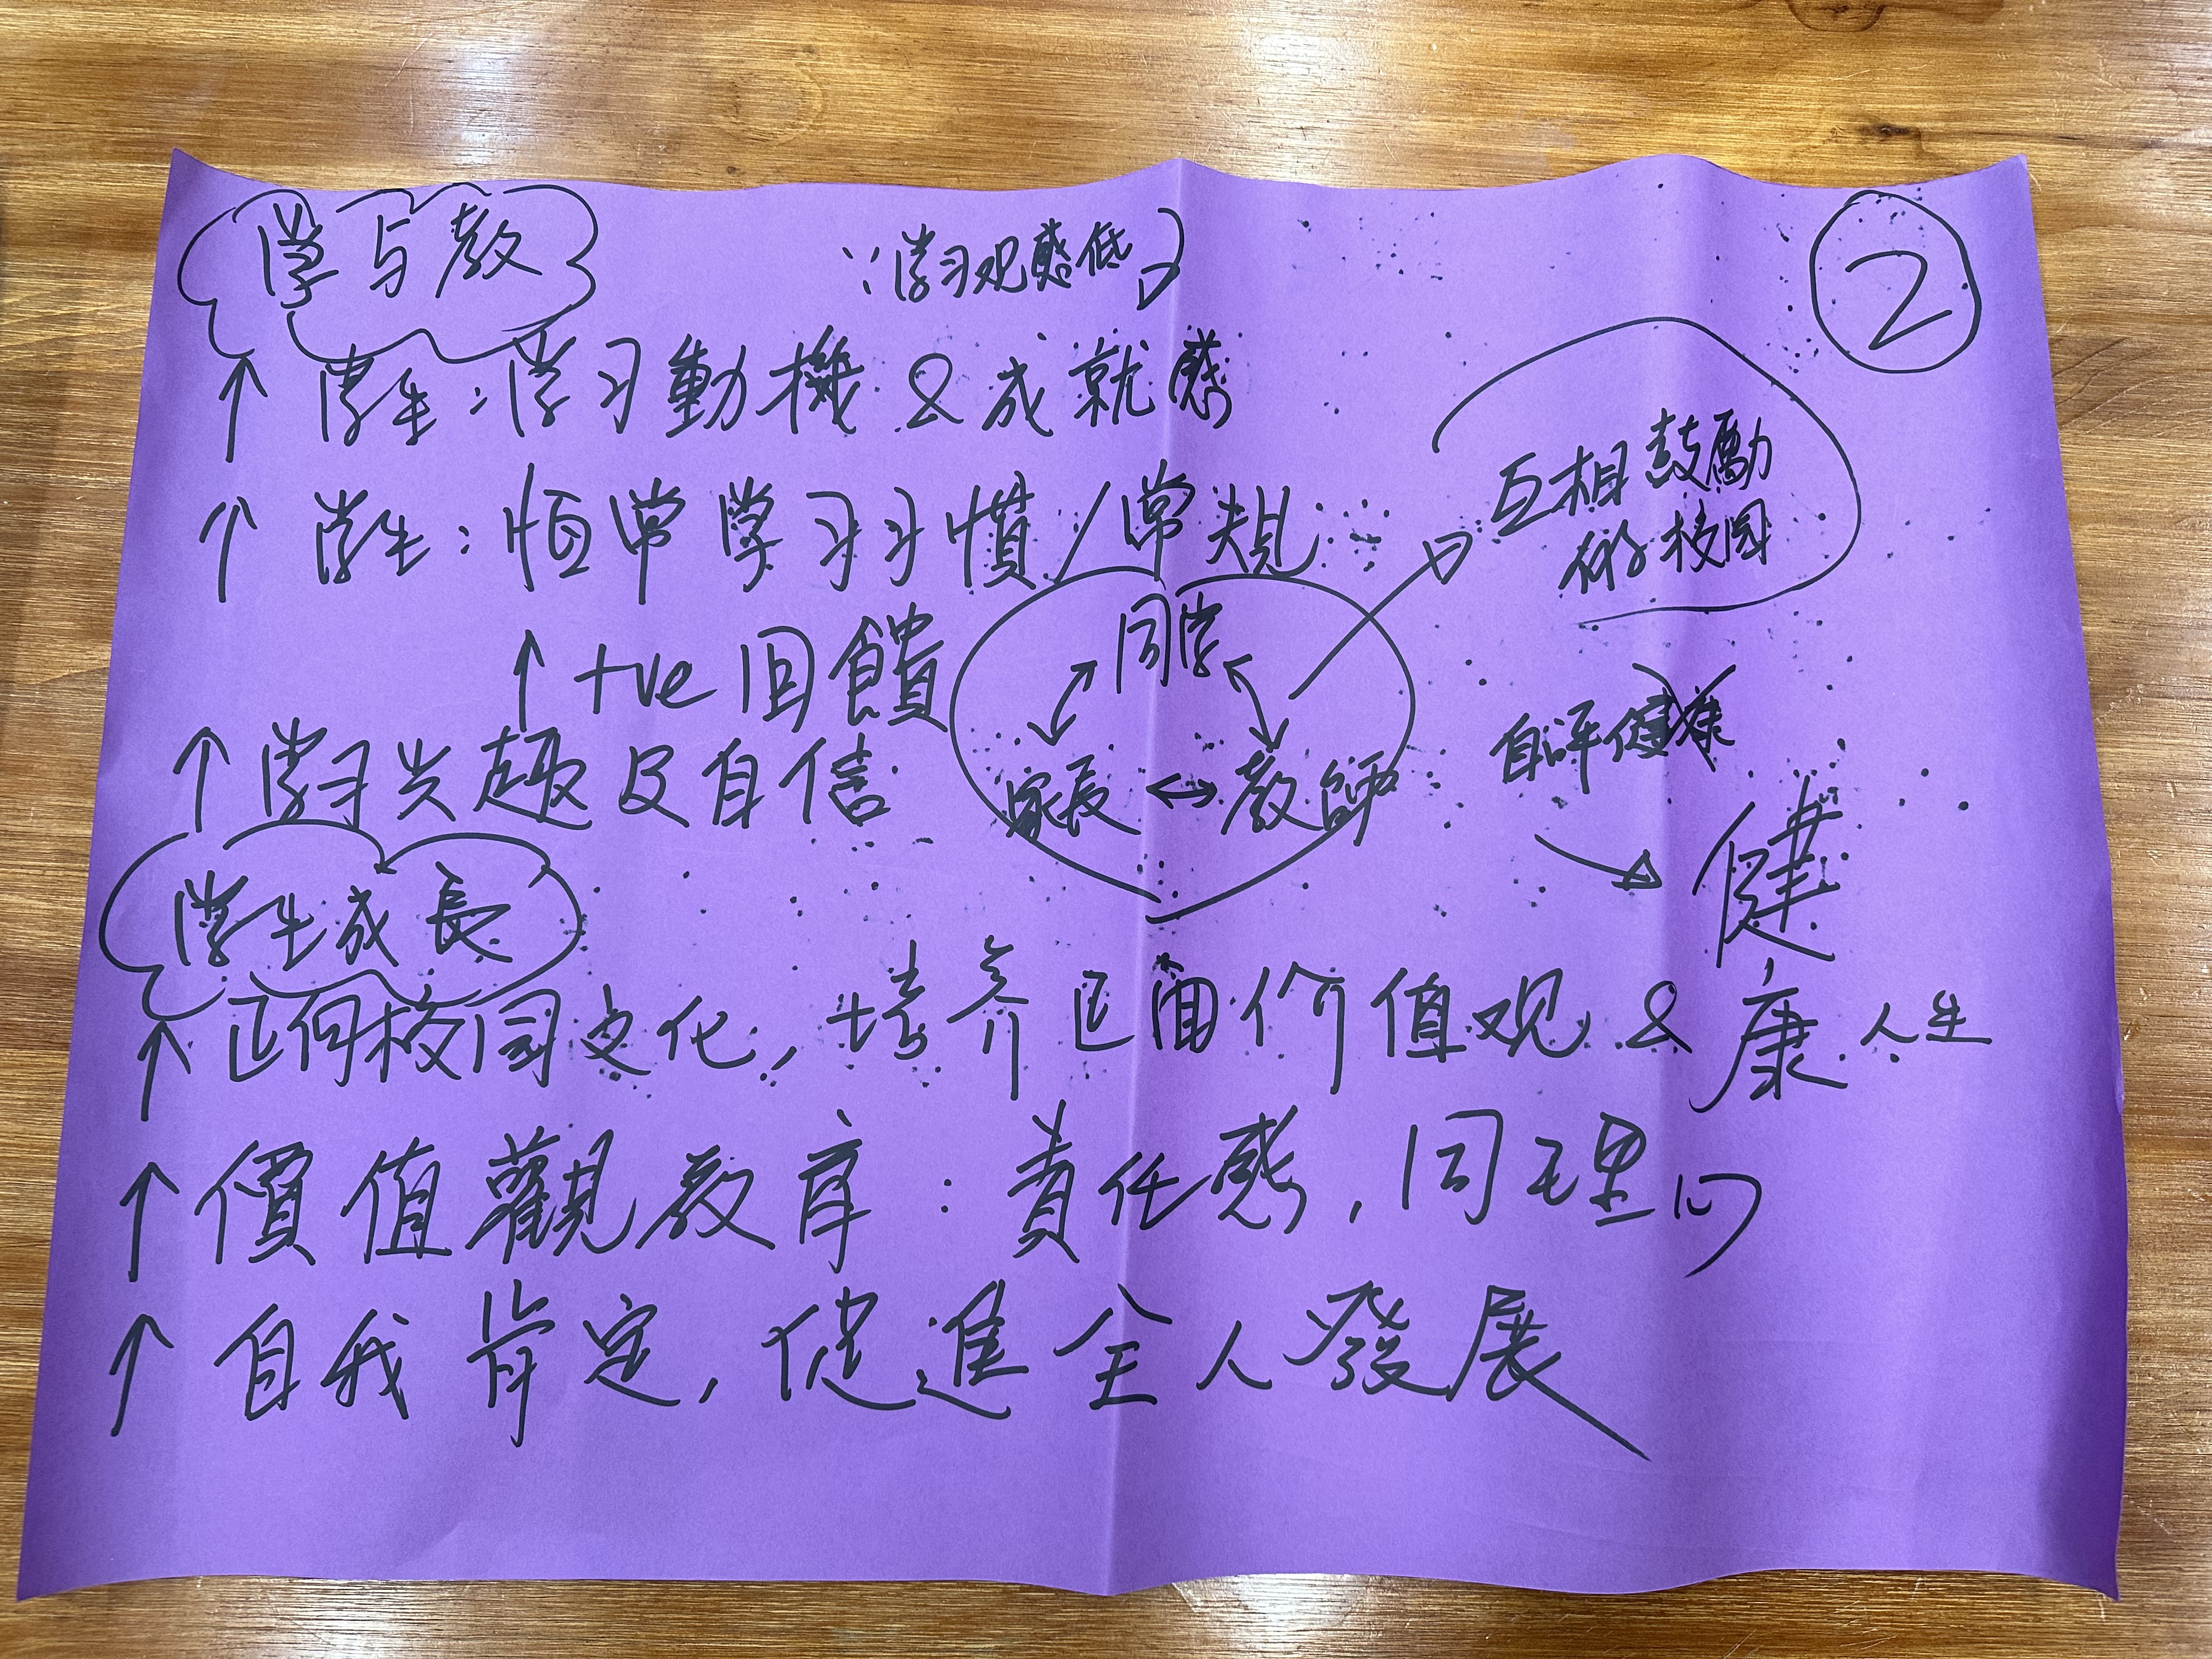 学与教
∵学习观感低
②
↑ 学生：学习動機 & 成就感
↑ 学生：恒常学习习慣/常規
互相鼓勵
的校园
↑ +ve 回饋
同学
家長 ↔ 教師
↑ 学习兴趣及自信
自评健康
学生成長
↑ 正向校园文化，培养正面价值观 & 健康人生
↑ 價值觀教育：責任感，同理心
↑ 自我肯定，促進全人發展